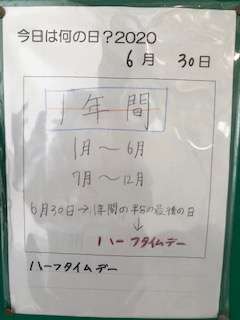 今日は何の日?2020
6月 30日
1年間
1月～6月
7月～12月
6月30日→1年間の半分の最後の日
↓
ハーフタイムデー
ハーフタイムデー